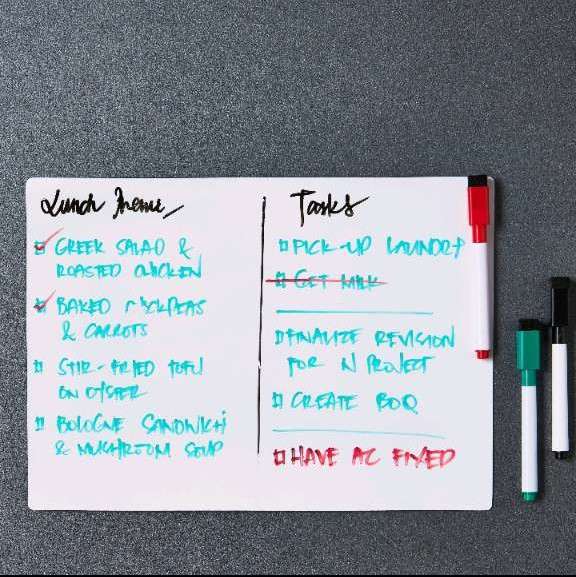 Lunch Menu
GREEK SALAD &
ROASTED CHICKEN
BAKED CHICKPEAS
& CARROTS
STIR-FRIED TOFU
ON OYSTER
BOLOGNE SANDWICH
& MUSHROOM SOUP
Tasks
PICK-UP LAUNDRY
GET MILK
FINALIZE REVISION
FOR N PROJECT
CREATE BOQ
HAVE AC FIXED